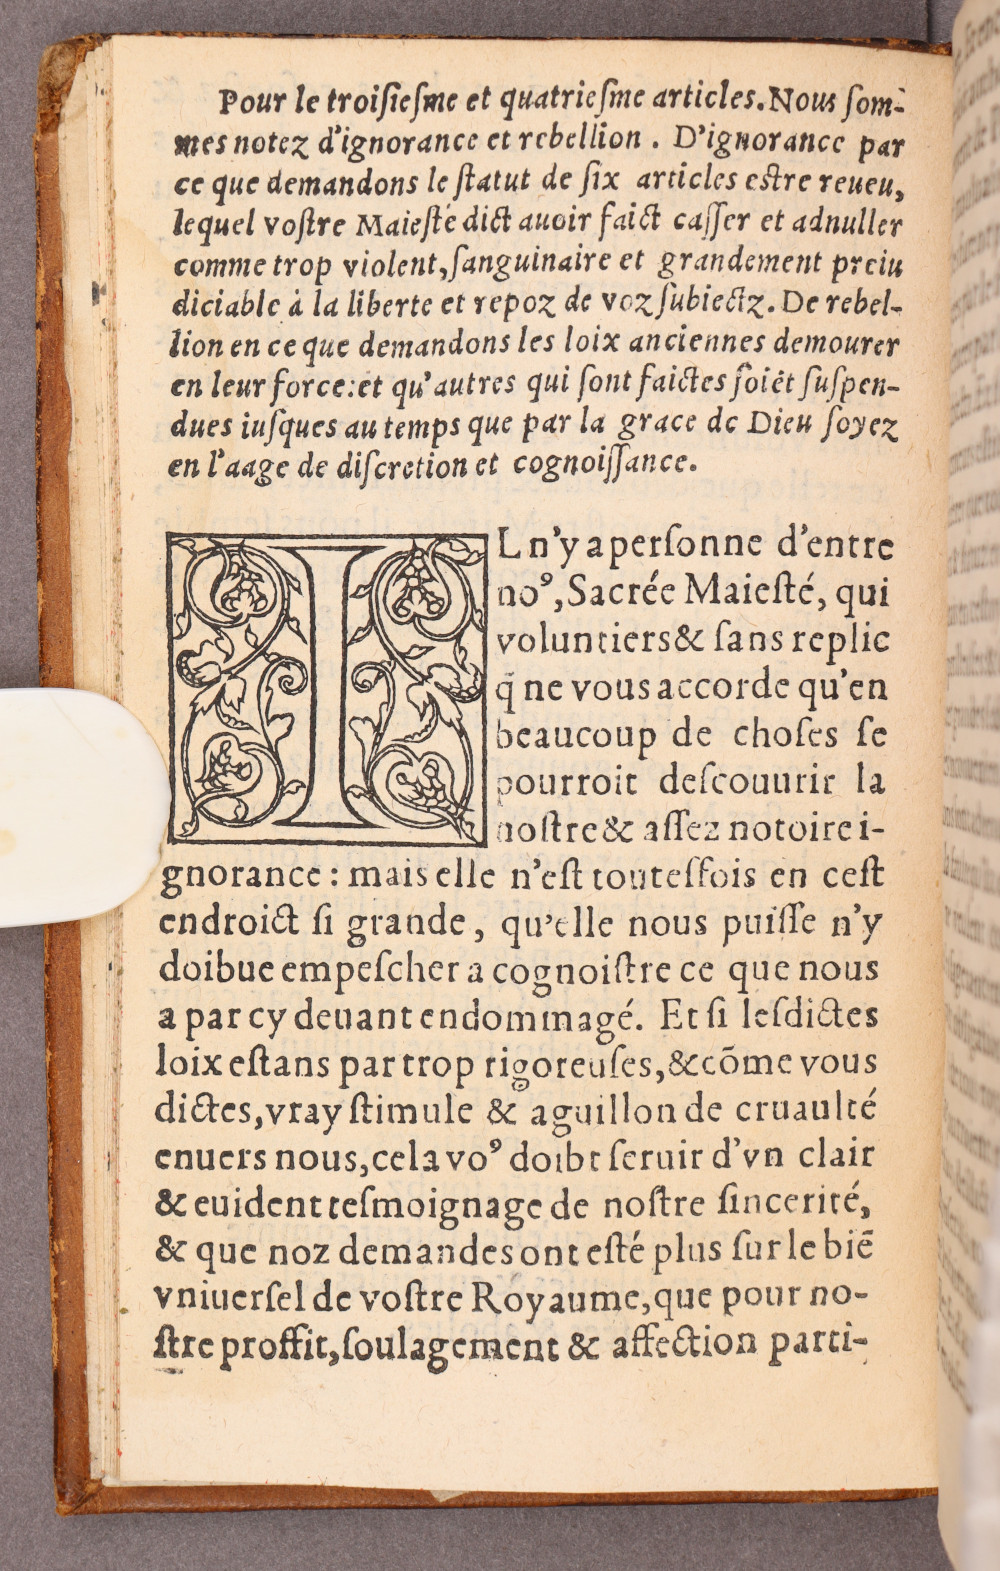 Pour le troiſieſme et quatrieſme articles. Nous ſom-
mes notez d'ignorance et rebellion . D'ignorance par
ce que demandons le ſtatut de ſix articles eſtre reueu,
lequel voſtre Maieſte dict auoir faict caſſer et adnuller
comme trop violent, ſanguinaire et grandement preiu
diciable à la liberte et repoz de voz ſubiectz. De rebel-
lion en ce que demandons les loix anciennes demourer
en leur force: et qu'autres qui ſont faictes ſoiẽt ſuſpen-
dues iuſques au temps que par la grace de Dieu ſoyez
en l'aage de diſcretion et cognoiſſance.
IL n'y a perſonne d'entre
noꝰ, Sacrée Maieſté, qui
voluntiers & ſans replic
q̃ ne vous accorde qu'en
beaucoup de choſes ſe
pourroit deſcouurir la
noſtre & aſſez notoire i-
gnorance : mais elle n'eſt touteſfois en ceſt
endroict ſi grande, qu'elle nous puiſſe n'y
doibue empeſcher a cognoiſtre ce que nous
a par cy deuant endommagé. Et ſi leſdictes
loix eſtans par trop rigoreuſes, & cõme vous
dictes, vray ſtimule & aguillon de cruaulté
enuers nous, cela voꝰ doibt ſeruir d'vn clair
& euident teſmoignage de noſtre ſincerité,
& que noz demandes ont eſté plus ſur le biẽ
vniuerſel de voſtre Royaume, que pour no-
ſtre proffit, ſoulagement & affection parti-